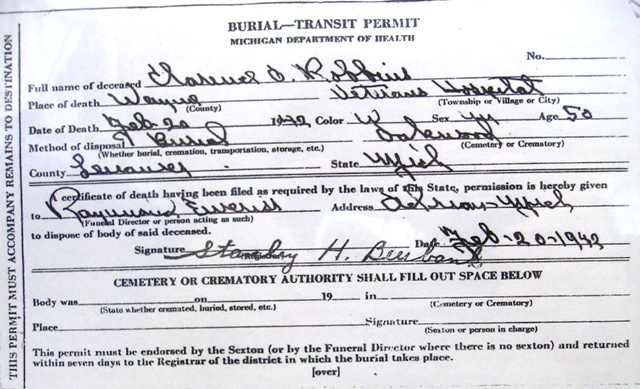 BURIAL—TRANSIT PERMIT
MICHIGAN DEPARTMENT OF HEALTH
No.
Full name of deceased Clarence O. Robbins
Place of death Wayne Veterans Hospital
(County) (Township or Village or City)
Date of Death Feb. 20 1942 Color W Sex M Age 50
Method of disposal Burial Oakwood
(Whether burial, cremation, transportation, storage, etc.) (Cemetery or Crematory)
County Lenawee State Mich
A certificate of death having been filed as required by the laws of this State, permission is hereby given
to Raymond Address Adrian Mich
(Funeral Director or person acting as such)
to dispose of body of said deceased.
Signature Stanley H. Burbank Date Feb-20-1942
CEMETERY OR CREMATORY AUTHORITY SHALL FILL OUT SPACE BELOW
Body was on 19 in
(State whether cremated, buried, stored, etc.) (Cemetery or Crematory)
Place Signature
(Sexton or person in charge)
This permit must be endorsed by the Sexton (or by the Funeral Director where there is no sexton) and returned
within seven days to the Registrar of the district in which the burial takes place.
[over]
THIS PERMIT MUST ACCOMPANY REMAINS TO DESTINATION